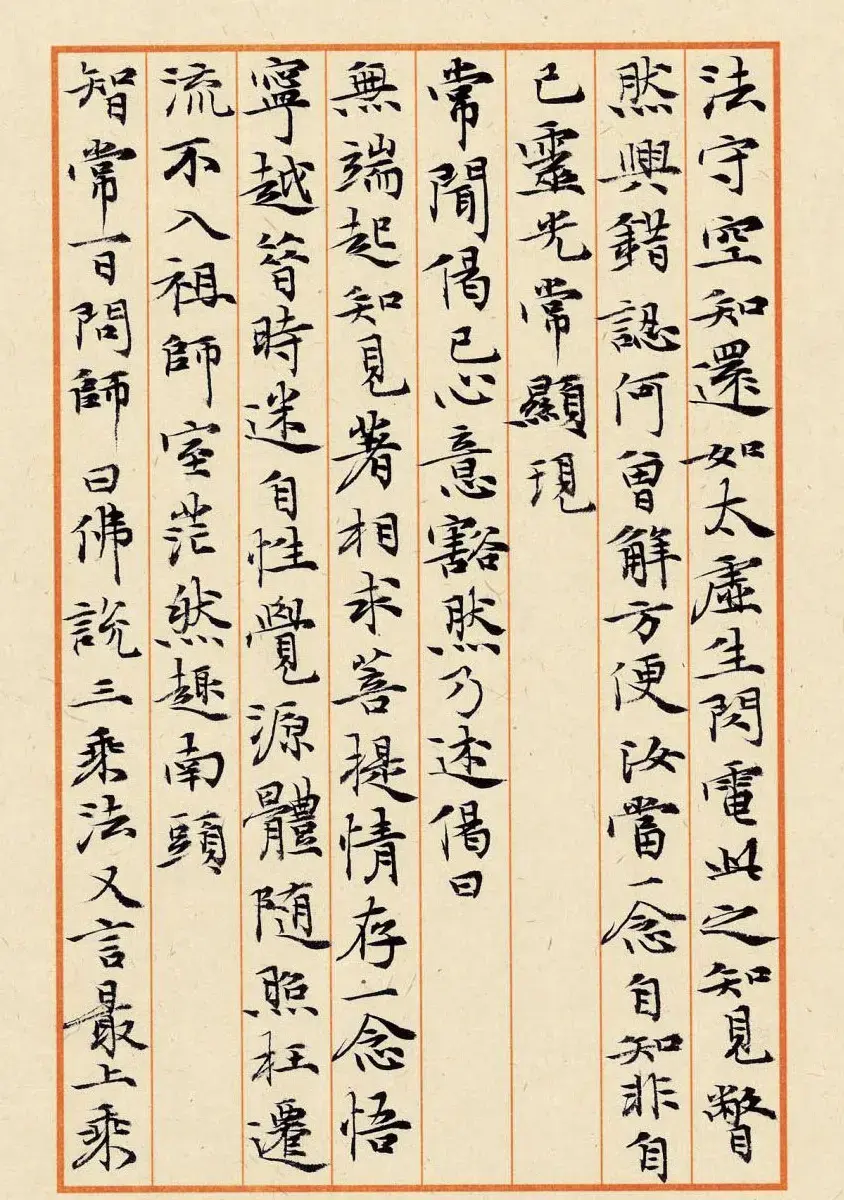 法守空知還如太虛生閃電此之知見瞥
然興錯認何曾解方便汝當一念自知非自
己靈光常顯現
常聞偈已心意豁然乃述偈曰
無端起知見著相求菩提情存一念悟
寧越昔時迷自性覺源體隨照枉遷
流不入祖師室茫然趣南頭
智常一日問師曰佛說三乘法又言最上乘